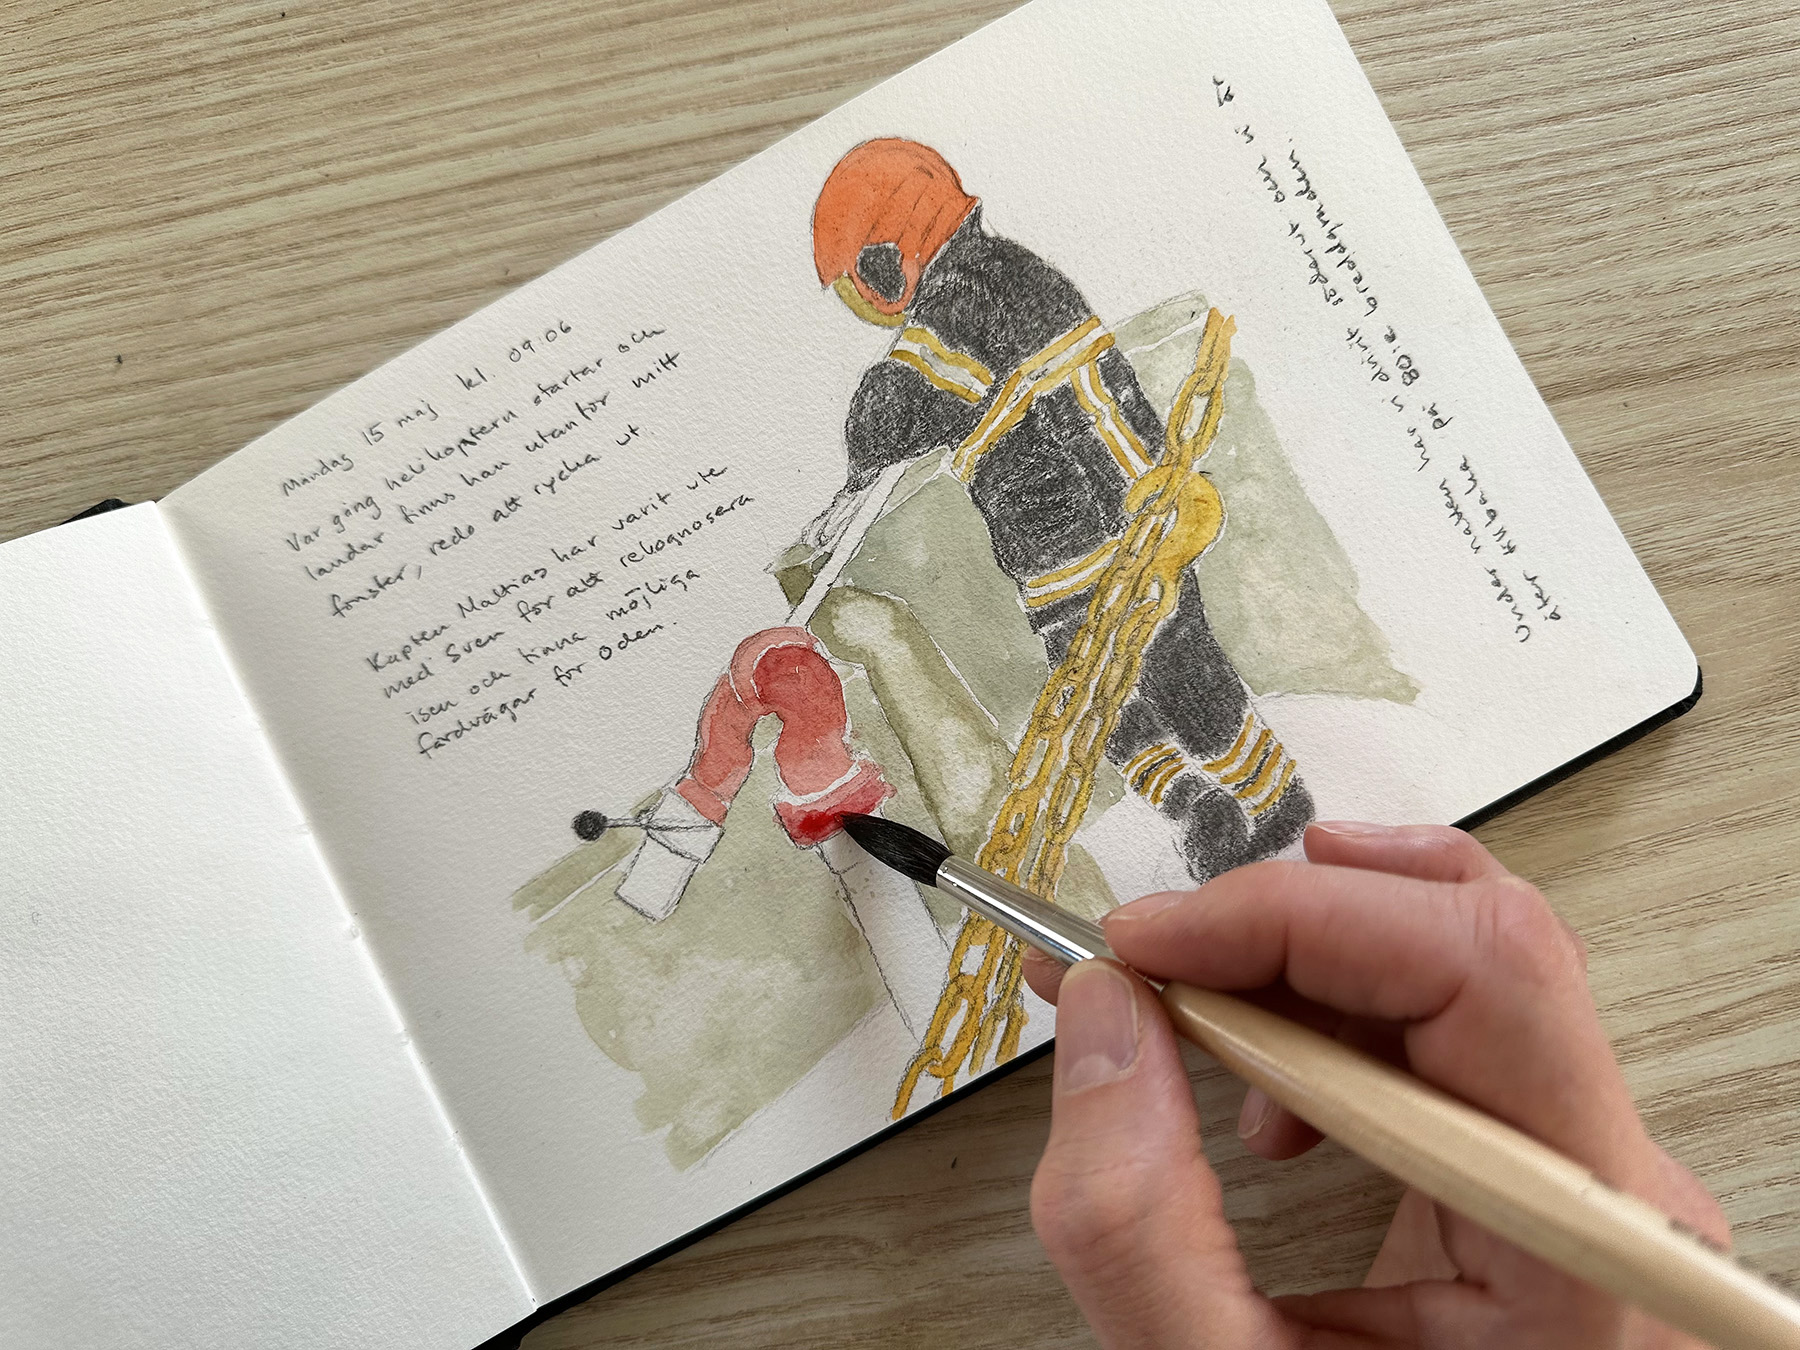 Måndag 15 maj kl. 09:06
Var gång helikoptern startar och
landar finns han utanför mitt
fönster, redo att rycka ut.
Kapten Mattias har varit ute
med Sven för att rekognosera
isen och finna möjliga
färdvägar för Oden.
Under natten har vi drivit söderut om vi är
åter tillbaka på 80:e breddgraden.